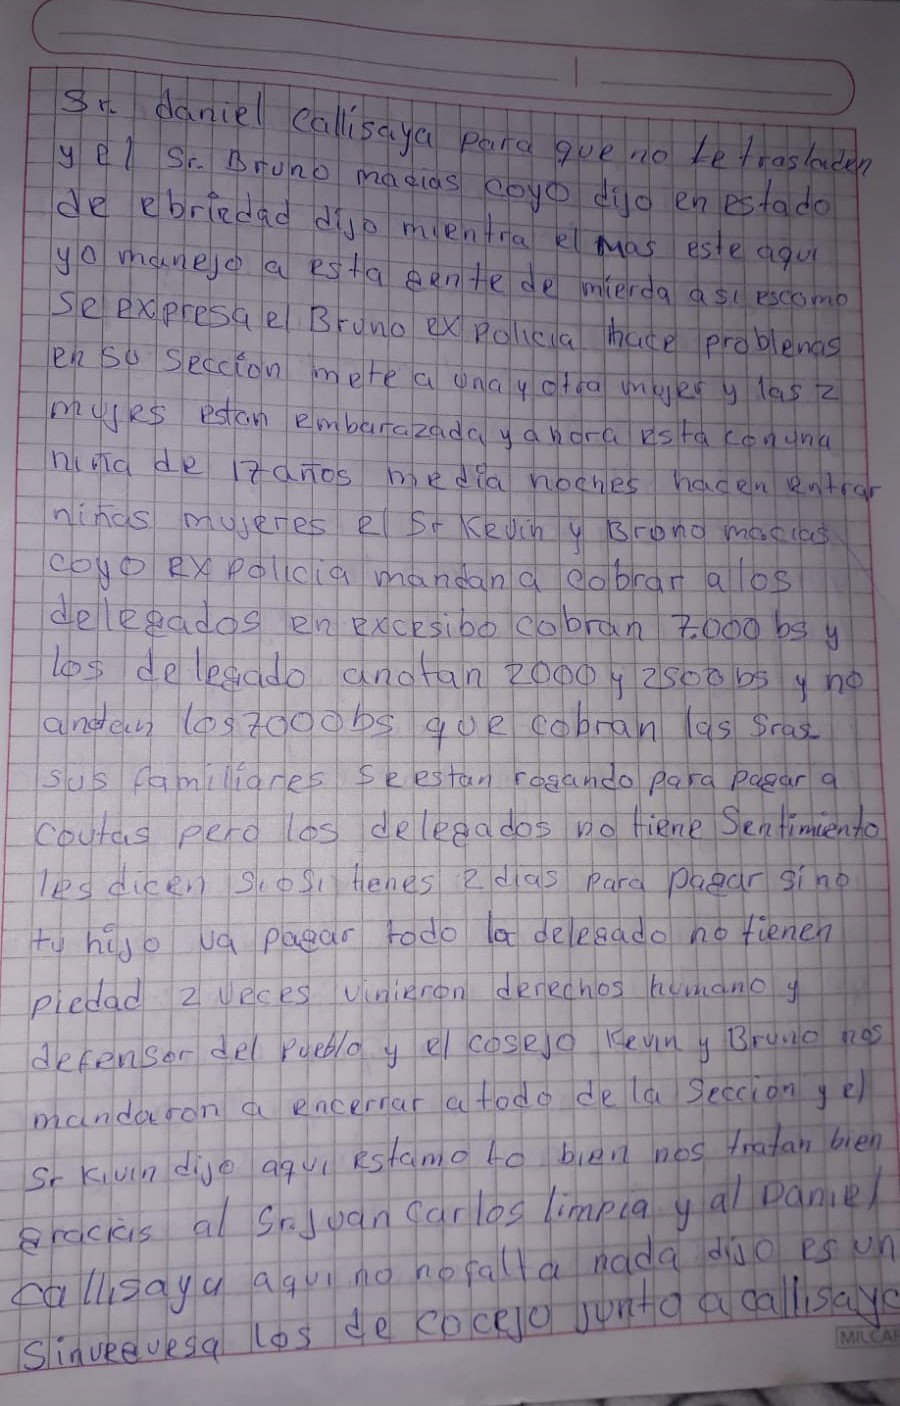 Sr. daniel callisaya para que no te trasladen
y el Sr. Bruno macias coyo dijo en estado
de ebriedad dijo mientra el mas este aqui
yo manejo a esta gente de mierda asi escomo
se expresa el Bruno ex policia hace problemas
en su seccion mete a una y otra mujer y las 2
mujres estan embarazada y ahora esta con una
niña de 17 años media noches hacen entrar
niñas mujeres el Sr Kevin y Brono macias
coyo ex policia mandan a cobrar a los
delegados en excesibo cobran 7.000 bs y
los delegado anotan 2000 y 2500 bs y no
anotan los 7000bs que cobran las Sras
sus familiares se estan rogando para pagar a
coutas pero los delegados no tiene Sentimiento
les dicen siosi tienes 2 dias para pagar sino
tu hijo va pagar todo la delegado no tienen
piedad 2 veces vinieron derechos humano y
defensor del pueblo y el cosejo Kevin y Bruno nos
mandaron a encerrar a todo de la seccion y el
Sr Kivin dijo aqui estamo to bien nos tratan bien
gracias al Sr. Juan Carlos limpia y al Daniel
callisaya aqui no no falta nada dijo es un
Sinvegvesa los de cocejo junto a callisaya
MILCAR